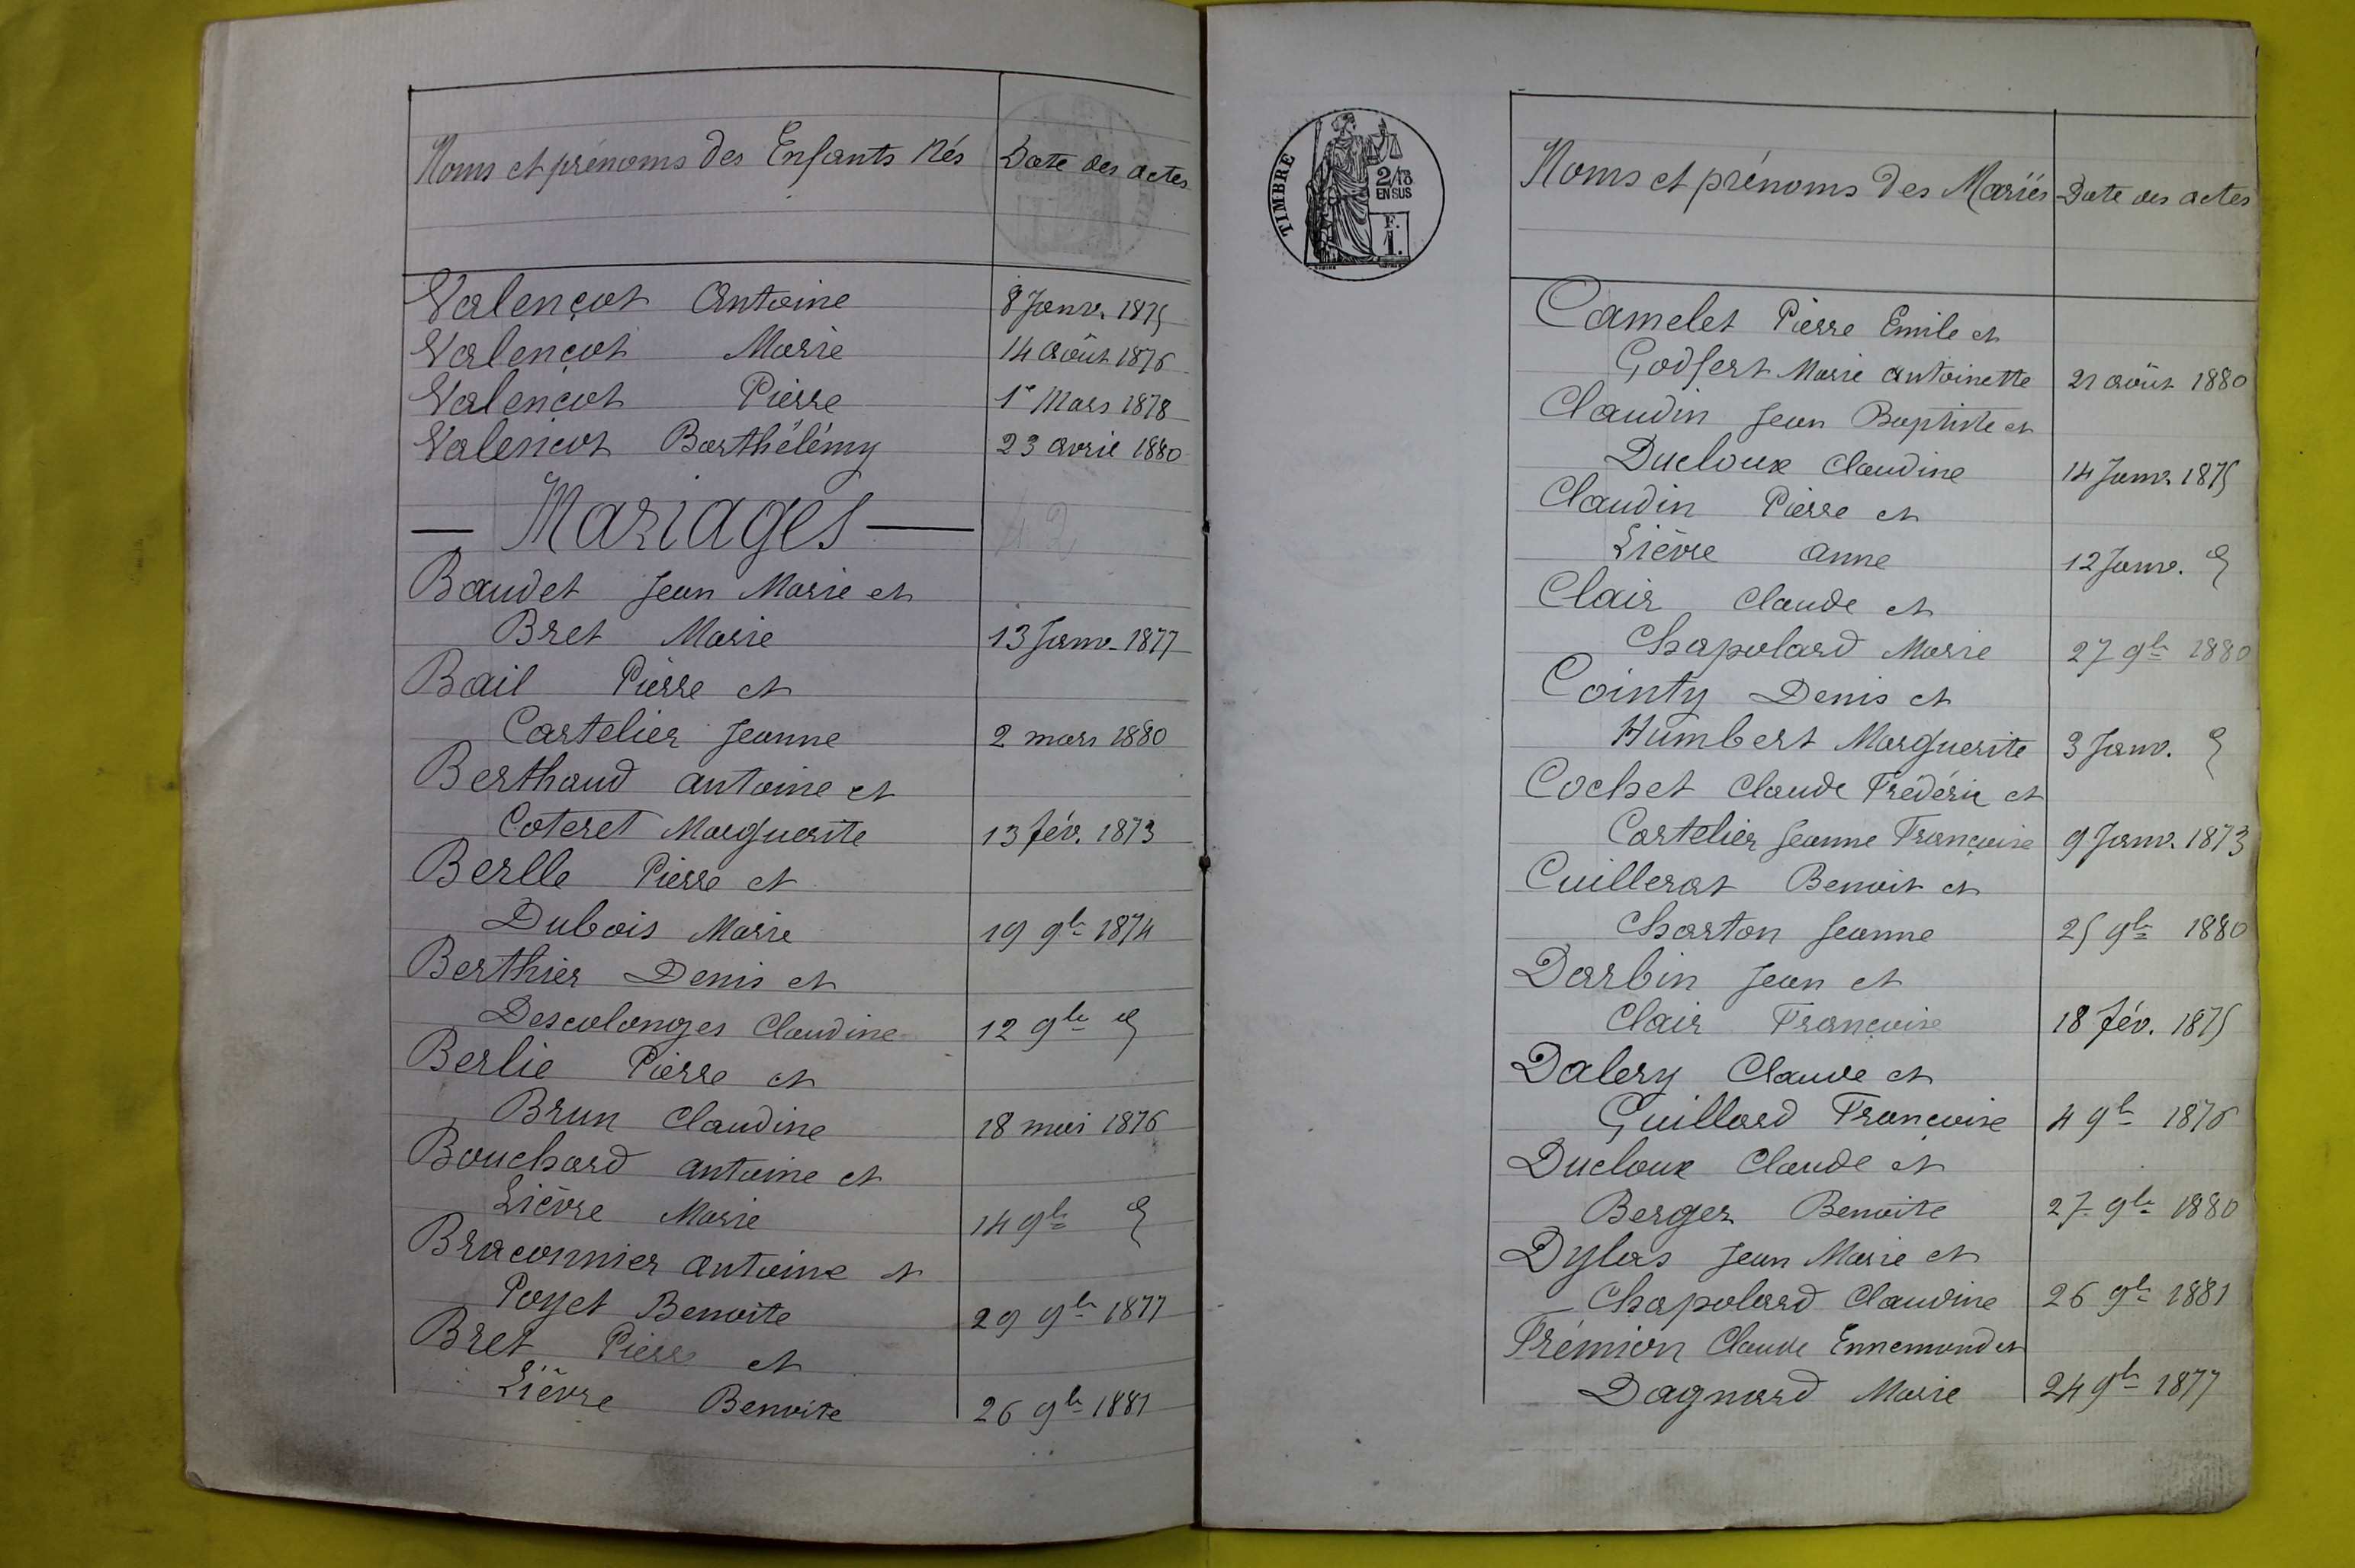 Noms et prénoms des Enfants Nés Date des actes
Valençot Antoine 8 Janv. 1875
Valençot Marie 14 août 1876
Valençot Pierre 1er Mars 1878
Valençot Barthélémy 23 avril 1880
— Mariages — 42
Baudet Jean Marie et
Bret Marie 13 Janv. 1877
Bail Pierre et
Cartelier Jeanne 2 mars 1880
Berthaud Antoine et
Coteret Marguerite 13 fév. 1873
Berlle Pierre et
Dubois Marie 19 9bre 1874
Berthier Denis et
Descolonges Claudine 12 9bre
Berlie Pierre et
Brun Claudine 18 mai 1876
Bouchard Antoine et
Lièvre Marie 14 9bre
Braconnier Antoine et
Poyet Benoite 29 9bre 1877
Bret Pierre et
Lièvre Benoite 26 9bre 1881
TIMBRE
2/10
EN SUS
F.
1.
Noms et prénoms des Mariés Date des actes
Camelet Pierre Emile et
Godfert Marie Antoinette 21 août 1880
Claudin Jean Baptiste et
Ducloux Claudine 14 Janv. 1875
Claudin Pierre et
Lièvre Anne 12 Janv.
Clair Claude et
Chapolard Marie 27 9bre 1880
Cointy Denis et
Humbert Marguerite 3 Janv.
Cochet Claude Frédéric et
Cartelier Jeanne Françoise 9 Janv. 1873
Cuillerat Benoit et
Charton Jeanne 25 9bre 1880
Darbin Jean et
Clair Françoise 18 fév. 1875
Dalery Claude et
Guillard Françoise 4 9bre 1876
Ducloux Claude et
Berger Benoite 27 9bre 1880
Dylas Jean Marie et
Chapolard Claudine 26 9bre 1881
Frémion Claude Ennemond et
Dagnard Marie 24 9bre 1877